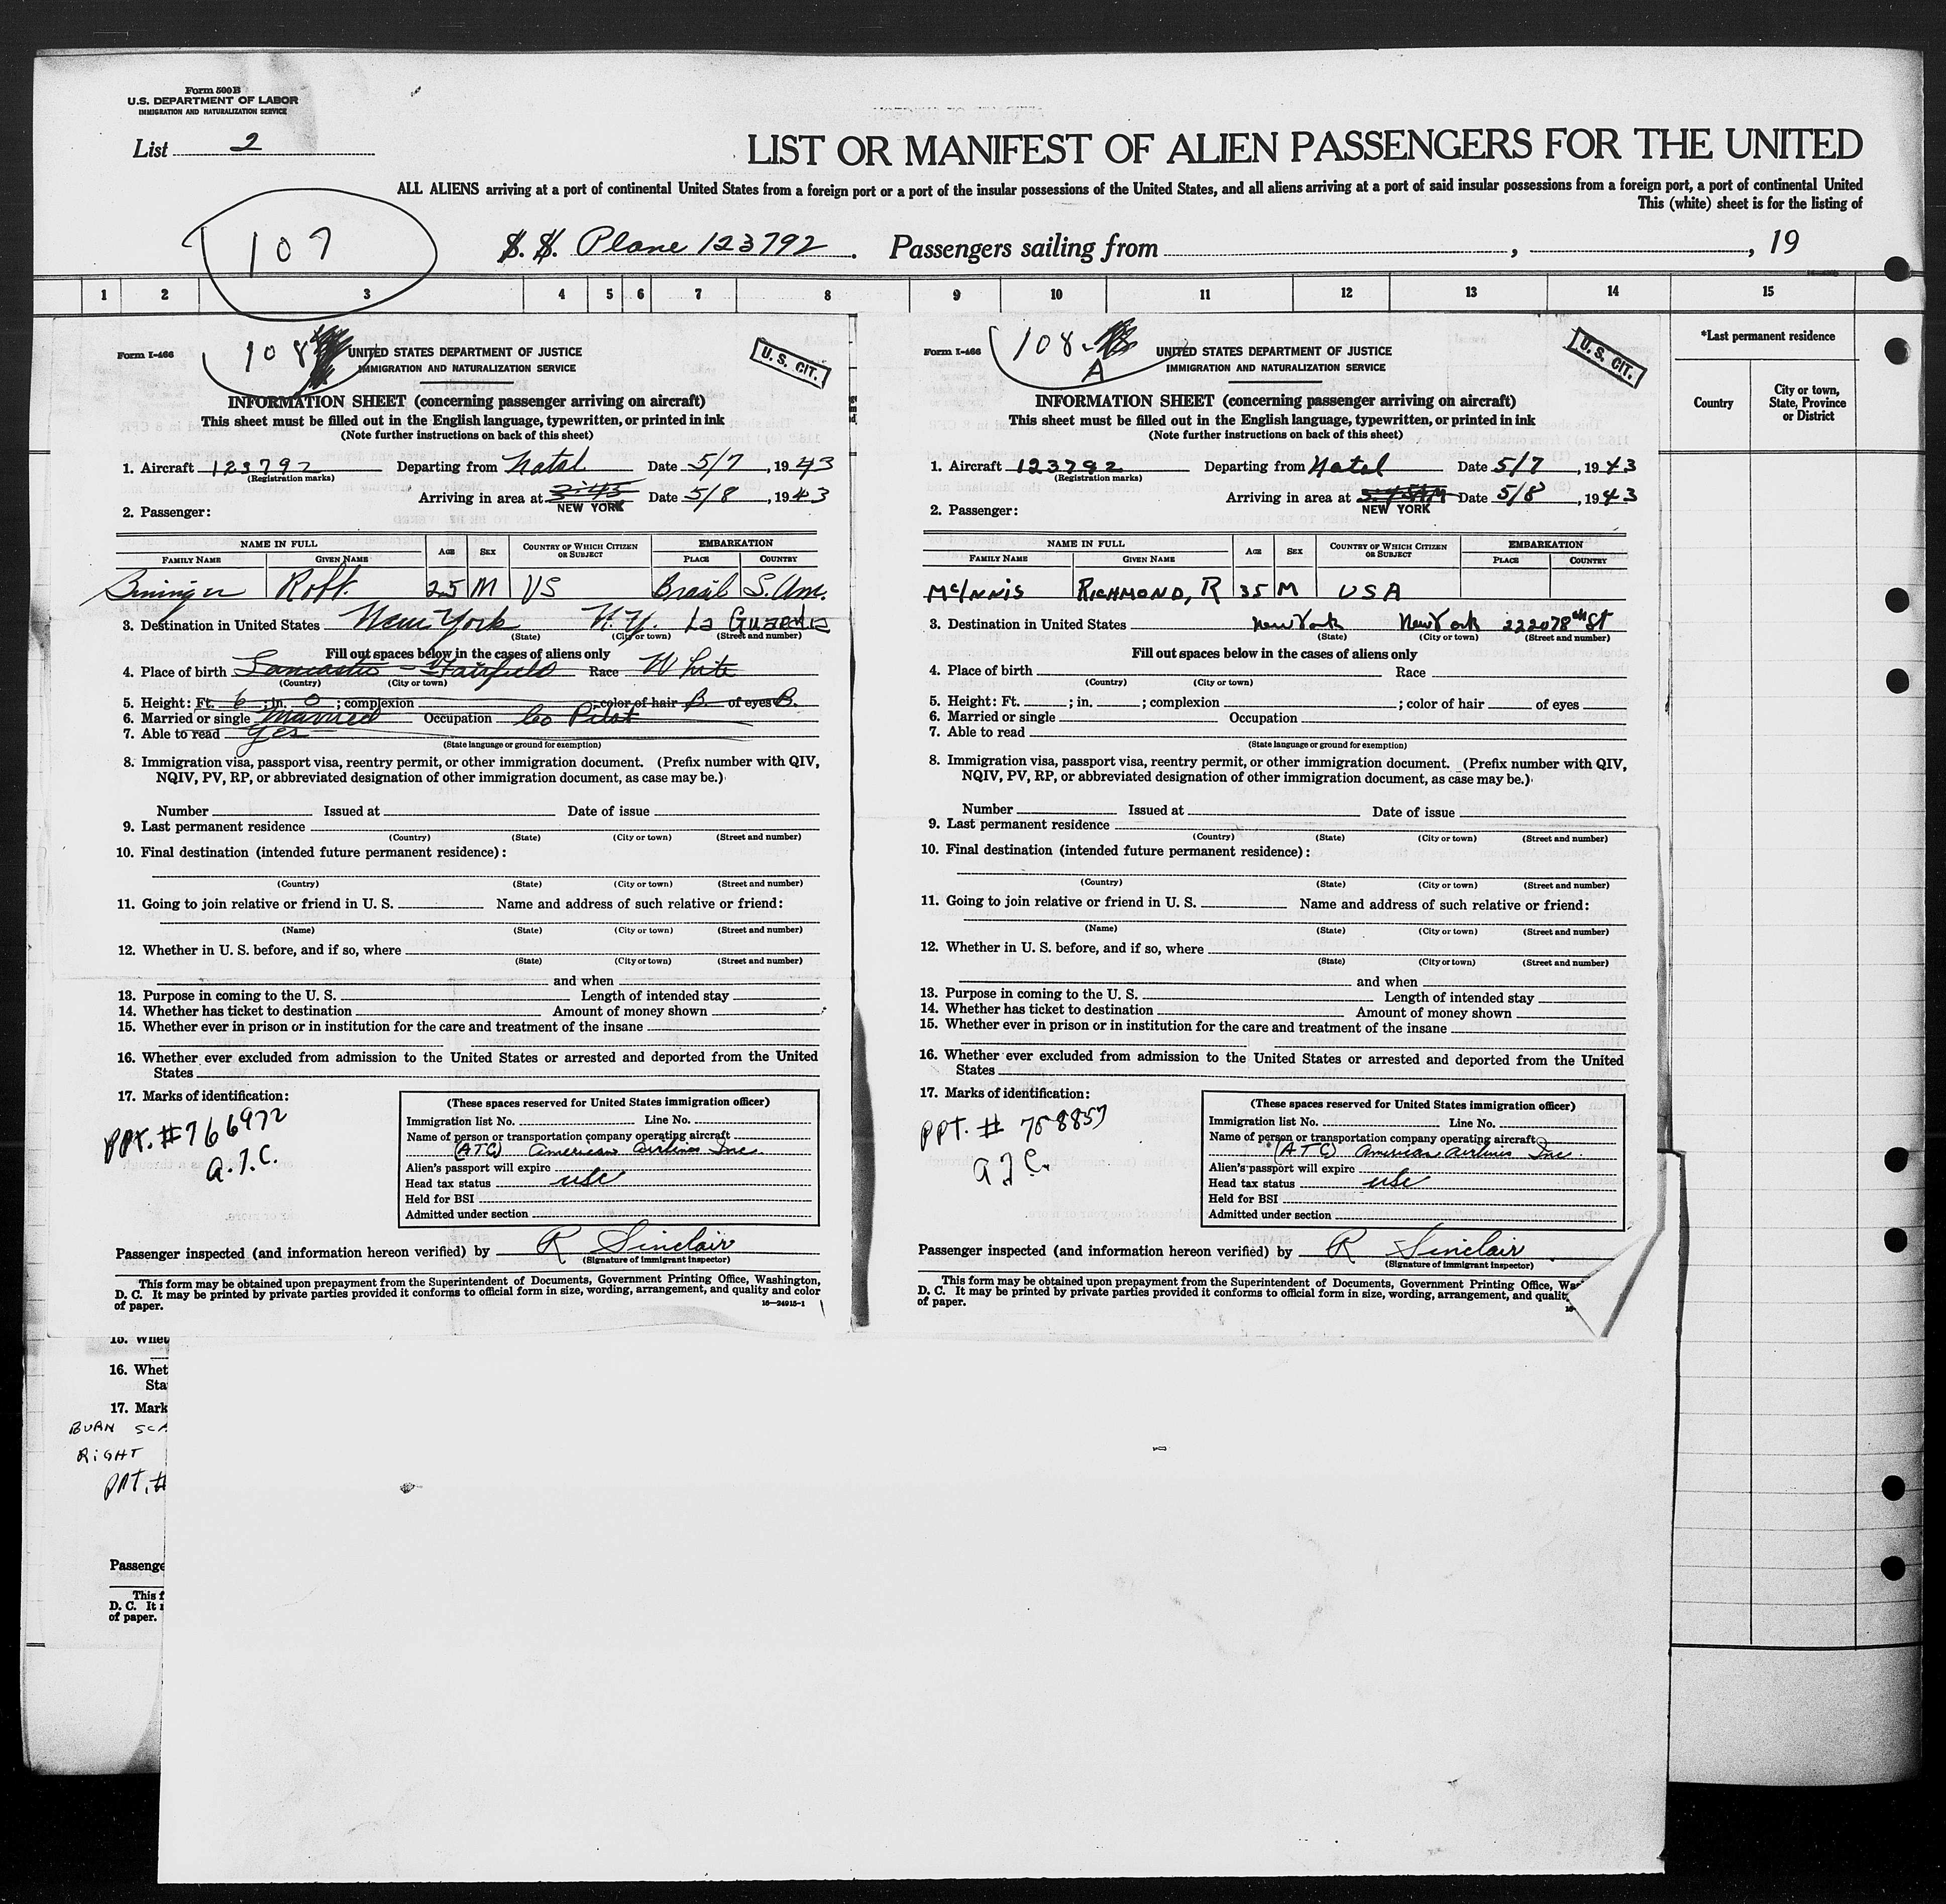 Form 500B
U.S. DEPARTMENT OF LABOR
IMMIGRATION AND NATURALIZATION SERVICE
List 2
LIST OR MANIFEST OF ALIEN PASSENGERS FOR THE UNITED
ALL ALIENS arriving at a port of continental United States from a foreign port or a port of the insular possessions of the United States, and all aliens arriving at a port of said insular possessions from a foreign port, a port of continental United
This (white) sheet is for the listing of
107
S. S. Plane 123792. Passengers sailing from , , 19
1 2 3 4 5 6 7 8 9 10 11 12 13 14 15
*Last permanent residence
Country
City or town, State, Province or District
Form I-466
108
UNITED STATES DEPARTMENT OF JUSTICE
IMMIGRATION AND NATURALIZATION SERVICE
U. S. CIT.
INFORMATION SHEET (concerning passenger arriving on aircraft)
This sheet must be filled out in the English language, typewritten, or printed in ink
(Note further instructions on back of this sheet)
1. Aircraft 123792 Departing from Natal Date 5/7, 1943
(Registration marks)
Arriving in area at 3:45 Date 5/8, 1943
NEW YORK
2. Passenger:
NAME IN FULL AGE SEX COUNTRY OF WHICH CITIZEN OR SUBJECT EMBARKATION
FAMILY NAME GIVEN NAME PLACE COUNTRY
Bininger Robt. 25 M US Brasil S. Am.
3. Destination in United States New York N.Y. La Guardia
(State) (City or town) (Street and number)
Fill out spaces below in the cases of aliens only
4. Place of birth Lancaster - Fairfield Race White
(Country) (City or town)
5. Height: Ft. 6; in. 0; complexion ; color of hair B. of eyes B.
6. Married or single Married Occupation Co Pilot
7. Able to read Yes
(State language or ground for exemption)
8. Immigration visa, passport visa, reentry permit, or other immigration document. (Prefix number with QIV,
NQIV, PV, RP, or abbreviated designation of other immigration document, as case may be.)
Number Issued at Date of issue
9. Last permanent residence
(Country) (State) (City or town) (Street and number)
10. Final destination (intended future permanent residence):
(Country) (State) (City or town) (Street and number)
11. Going to join relative or friend in U. S. Name and address of such relative or friend:
(Name) (State) (City or town) (Street and number)
12. Whether in U. S. before, and if so, where
(State) (City or town) (Street and number)
and when
13. Purpose in coming to the U. S. Length of intended stay
14. Whether has ticket to destination Amount of money shown
15. Whether ever in prison or in institution for the care and treatment of the insane
16. Whether ever excluded from admission to the United States or arrested and deported from the United
States
17. Marks of identification:
PPT. #766972
A.T.C.
(These spaces reserved for United States immigration officer)
Immigration list No. Line No.
Name of person or transportation company operating aircraft
(ATC) American Airlines Inc.
Alien's passport will expire
Head tax status USC
Held for BSI
Admitted under section
Passenger inspected (and information hereon verified) by R Sinclair
(Signature of immigrant inspector)
This form may be obtained upon prepayment from the Superintendent of Documents, Government Printing Office, Washington,
D. C. It may be printed by private parties provided it conforms to official form in size, wording, arrangement, and quality and color
of paper. 16—24915-1
Form I-466
108-
A
UNITED STATES DEPARTMENT OF JUSTICE
IMMIGRATION AND NATURALIZATION SERVICE
U. S. CIT.
INFORMATION SHEET (concerning passenger arriving on aircraft)
This sheet must be filled out in the English language, typewritten, or printed in ink
(Note further instructions on back of this sheet)
1. Aircraft 123792 Departing from Natal Date 5/7, 1943
(Registration marks)
Arriving in area at Date 5/8, 1943
NEW YORK
2. Passenger:
NAME IN FULL AGE SEX COUNTRY OF WHICH CITIZEN OR SUBJECT EMBARKATION
FAMILY NAME GIVEN NAME PLACE COUNTRY
McINNIS RICHMOND, R 35 M USA
3. Destination in United States New York New York 222078th St
(State) (City or town) (Street and number)
Fill out spaces below in the cases of aliens only
4. Place of birth Race
(Country) (City or town)
5. Height: Ft. ; in. ; complexion ; color of hair of eyes
6. Married or single Occupation
7. Able to read
(State language or ground for exemption)
8. Immigration visa, passport visa, reentry permit, or other immigration document. (Prefix number with QIV,
NQIV, PV, RP, or abbreviated designation of other immigration document, as case may be.)
Number Issued at Date of issue
9. Last permanent residence
(Country) (State) (City or town) (Street and number)
10. Final destination (intended future permanent residence):
(Country) (State) (City or town) (Street and number)
11. Going to join relative or friend in U. S. Name and address of such relative or friend:
(Name) (State) (City or town) (Street and number)
12. Whether in U. S. before, and if so, where
(State) (City or town) (Street and number)
and when
13. Purpose in coming to the U. S. Length of intended stay
14. Whether has ticket to destination Amount of money shown
15. Whether ever in prison or in institution for the care and treatment of the insane
16. Whether ever excluded from admission to the United States or arrested and deported from the United
States
17. Marks of identification:
PPT. # 758857
ATC.
(These spaces reserved for United States immigration officer)
Immigration list No. Line No.
Name of person or transportation company operating aircraft
(ATC) American Airlines Inc.
Alien's passport will expire
Head tax status USC
Held for BSI
Admitted under section
Passenger inspected (and information hereon verified) by R Sinclair
(Signature of immigrant inspector)
This form may be obtained upon prepayment from the Superintendent of Documents, Government Printing Office, Was
D. C. It may be printed by private parties provided it conforms to official form in size, wording, arrangement, and qualit
of paper. 16
15. Whet
16. Whet
Sta
17. Mark
BURN SCA
RIGHT
PPT. #
Passenge
This f
D. C. It
of paper.